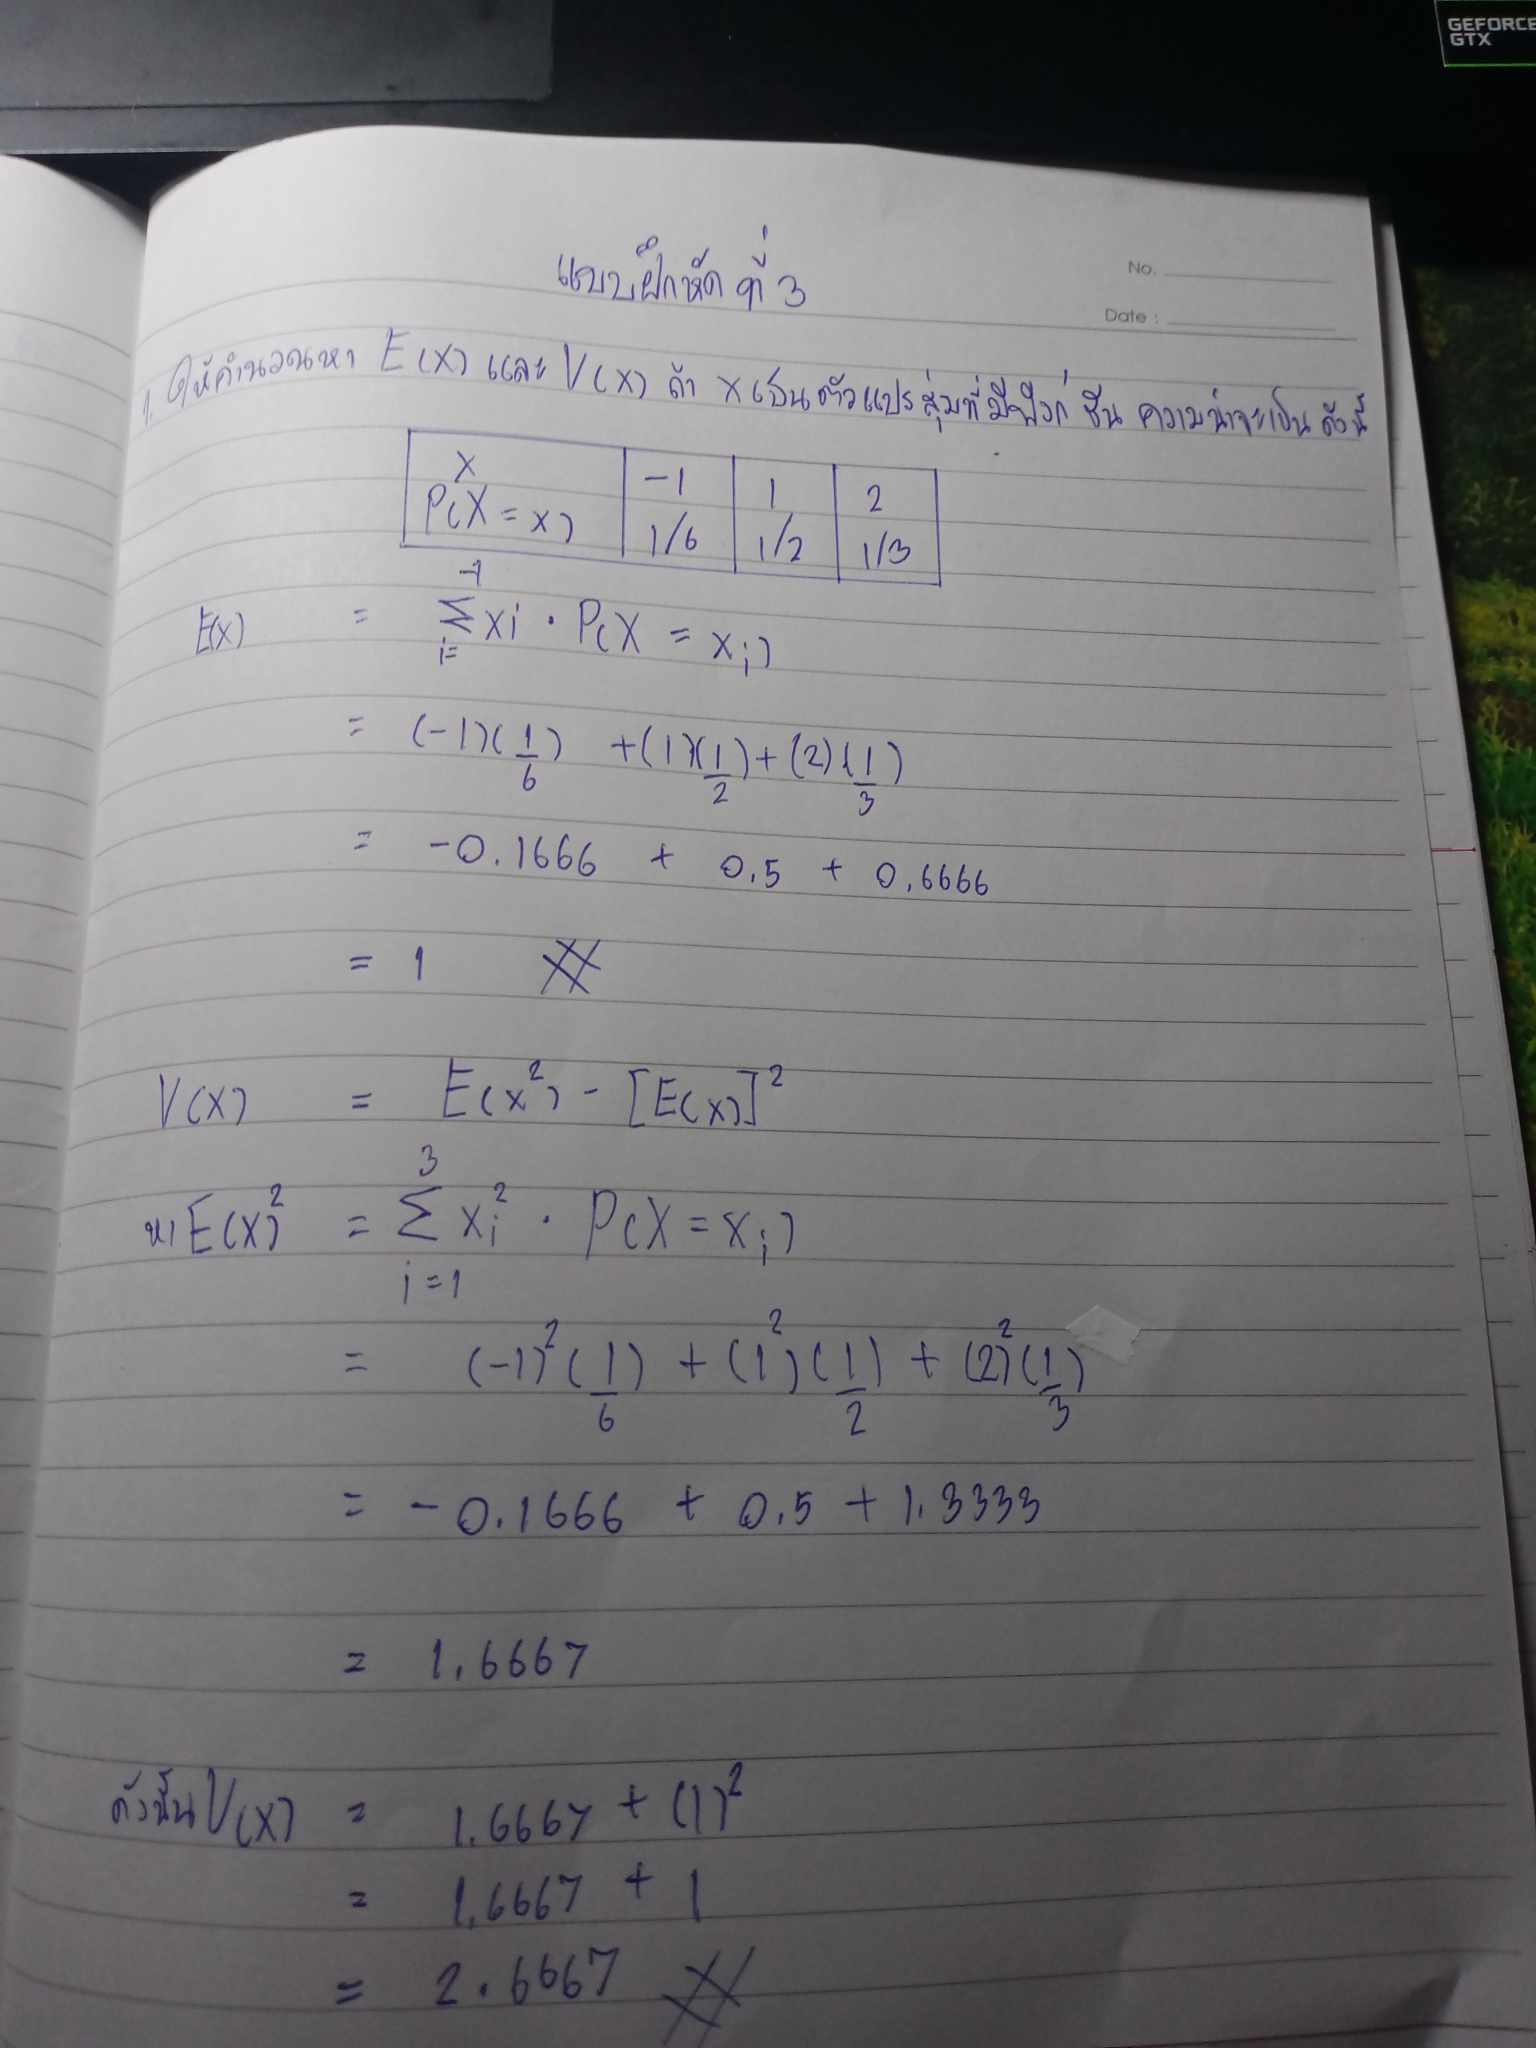 GEFORCE
GTX
No.
Date :
แบบฝึกหัด ที่ 3
1. ให้คำนวณหา E(X) และ V(X) ถ้า X เป็นตัวแปรสุ่มที่มีฟังก์ชัน ความน่าจะเป็น ดังนี้
X -1 1 2
P(X = x) 1/6 1/2 1/3
-1
E(X) = Σ xi · P(X = xi)
i=
= (-1)(1/6) + (1)(1/2) + (2)(1/3)
= -0.1666 + 0.5 + 0.6666
= 1
V(X) = E(x²) - [E(x)]²
3
หา E(X)² = Σ xi² · P(X = xi)
i=1
= (-1)²(1/6) + (1²)(1/2) + (2)²(1/3)
= -0.1666 + 0.5 + 1.3333
= 1.6667
ดังนั้น V(X) = 1.6667 + (1)²
= 1.6667 + 1
= 2.6667